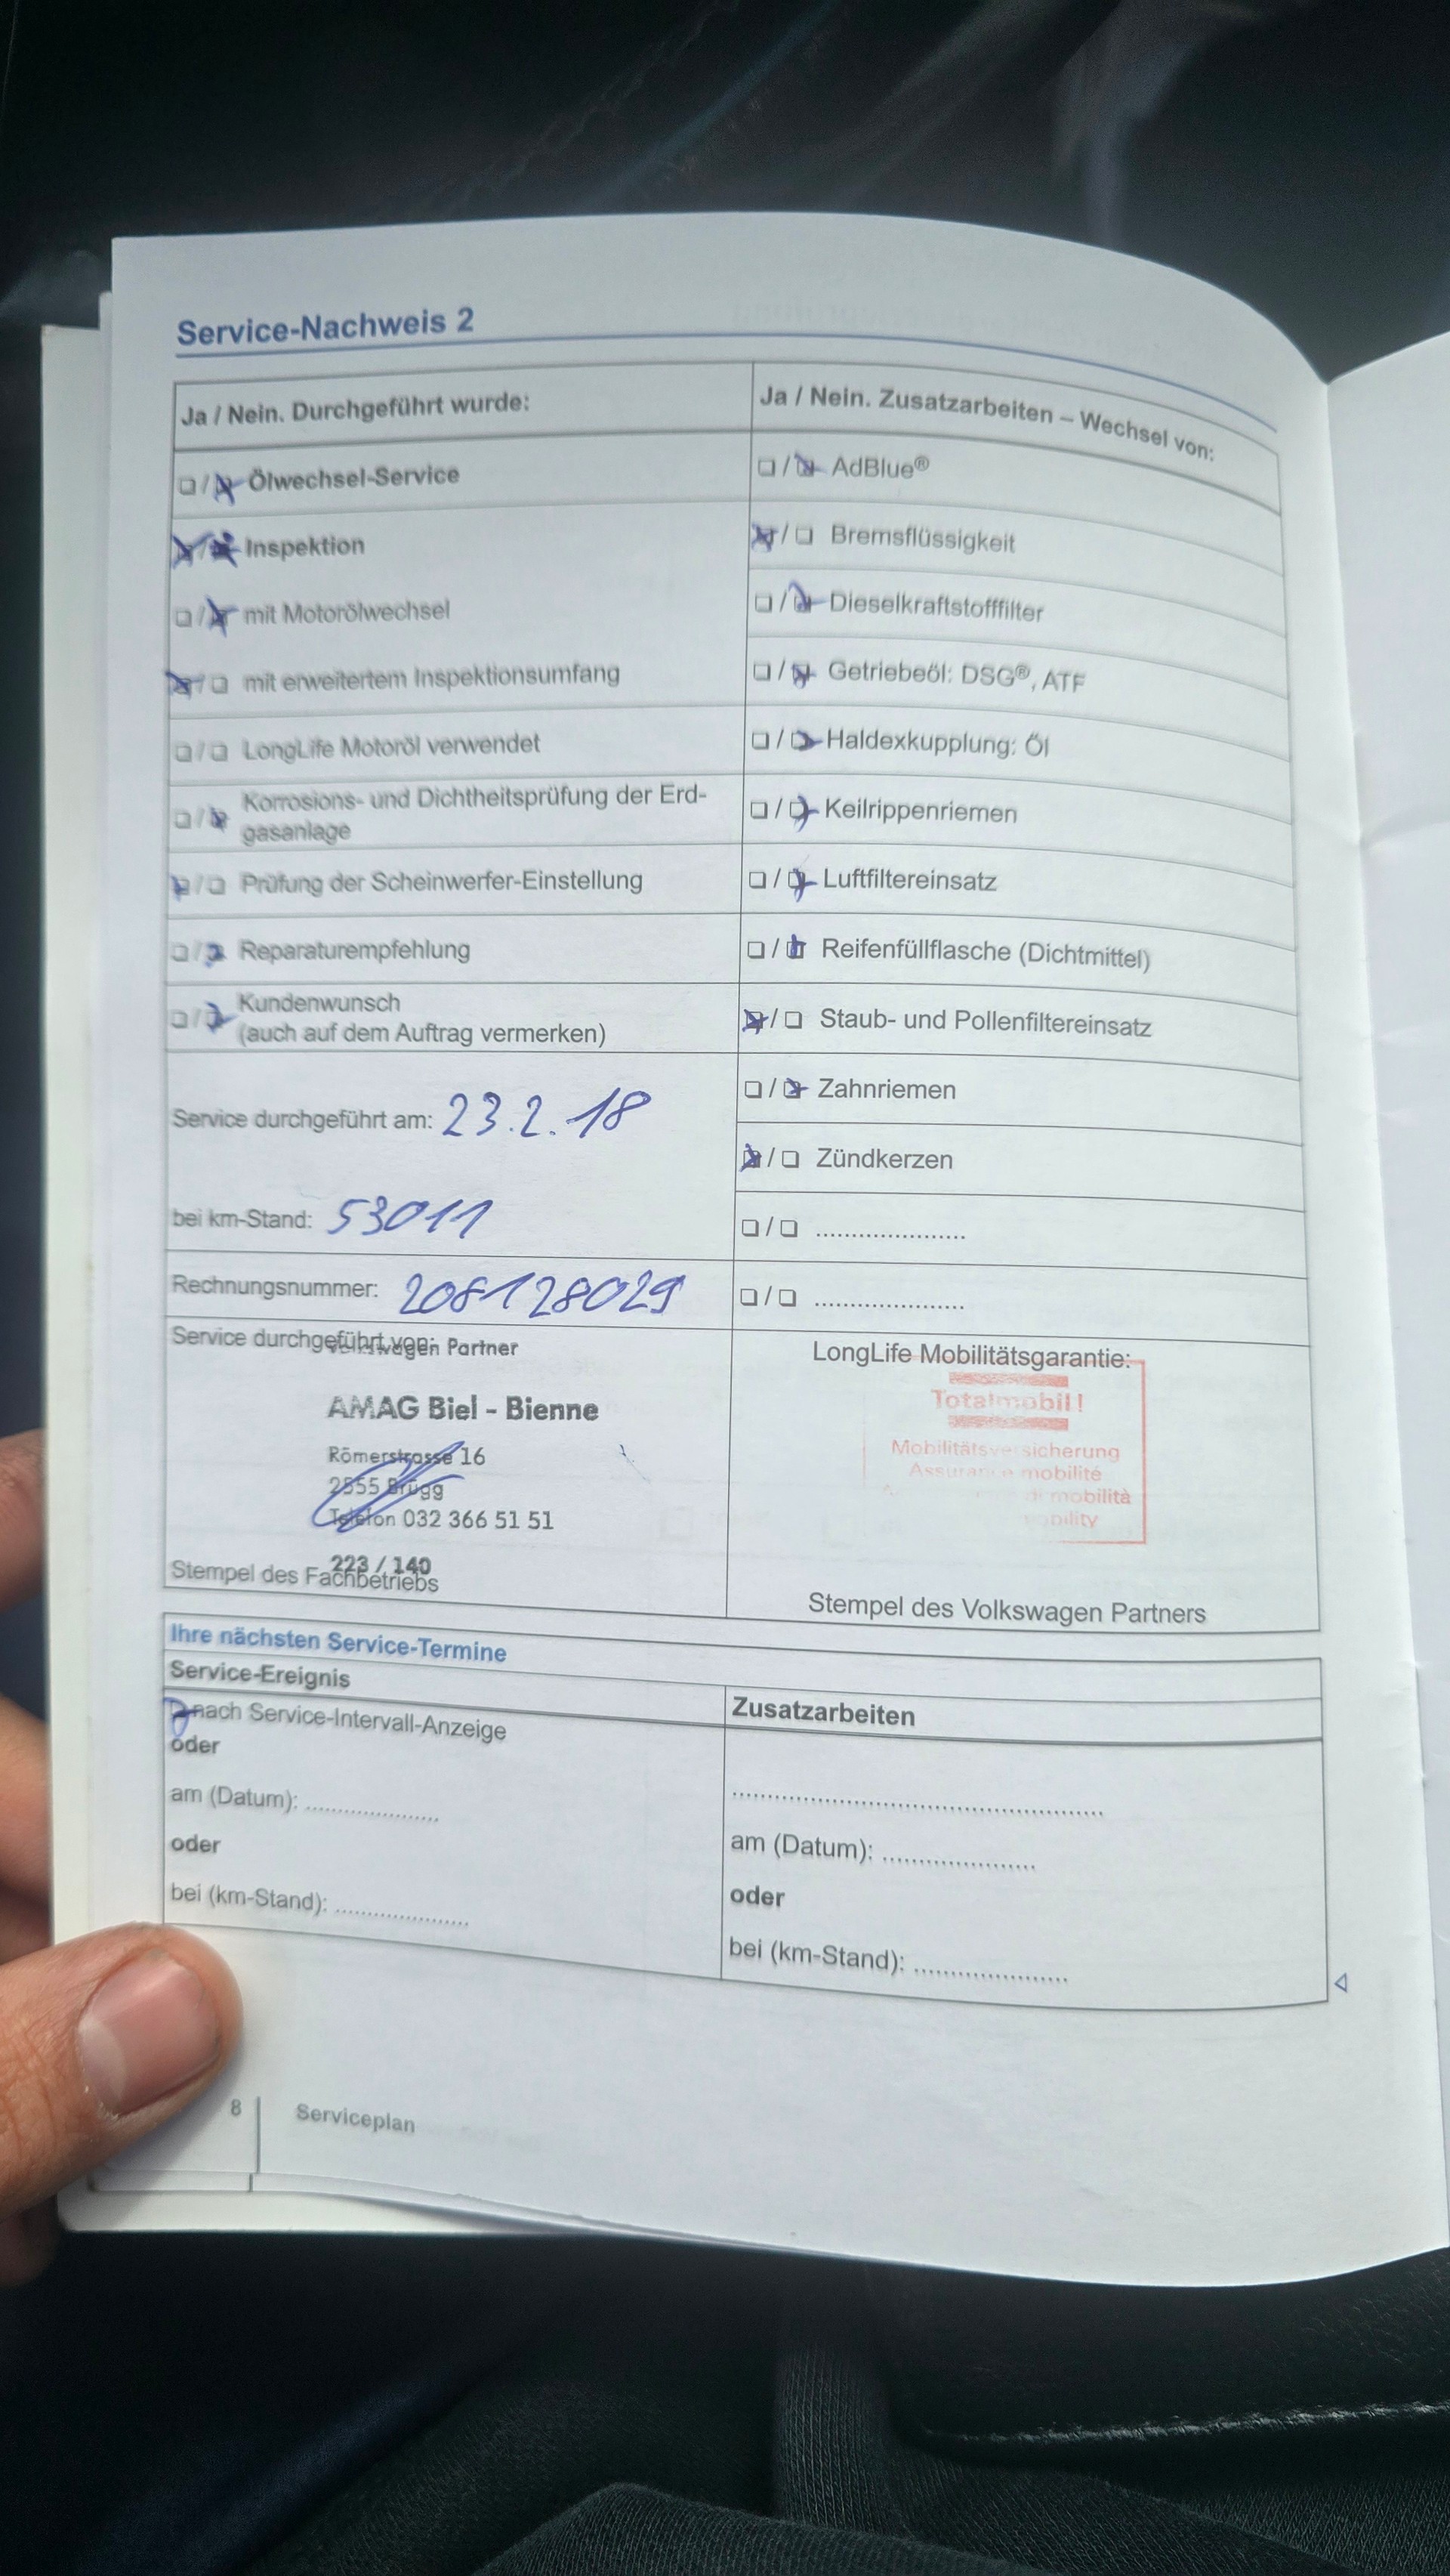 Service-Nachweis 2
Ja / Nein. Durchgeführt wurde:
❏ / ❏ Ölwechsel-Service
❏ / ❏ Inspektion
❏ / ❏ mit Motorölwechsel
❏ / ❏ mit erweitertem Inspektionsumfang
❏ / ❏ LongLife Motoröl verwendet
❏ / ❏ Korrosions- und Dichtheitsprüfung der Erd-
gasanlage
❏ / ❏ Prüfung der Scheinwerfer-Einstellung
❏ / ❏ Reparaturempfehlung
❏ / ❏ Kundenwunsch
(auch auf dem Auftrag vermerken)
Service durchgeführt am: 23.2.18
bei km-Stand: 53011
Rechnungsnummer: 208128029
Ja / Nein. Zusatzarbeiten – Wechsel von:
❏ / ❏ AdBlue®
❏ / ❏ Bremsflüssigkeit
❏ / ❏ Dieselkraftstofffilter
❏ / ❏ Getriebeöl: DSG®, ATF
❏ / ❏ Haldexkupplung: Öl
❏ / ❏ Keilrippenriemen
❏ / ❏ Luftfiltereinsatz
❏ / ❏ Reifenfüllflasche (Dichtmittel)
❏ / ❏ Staub- und Pollenfiltereinsatz
❏ / ❏ Zahnriemen
❏ / ❏ Zündkerzen
❏ / ❏ ......................
❏ / ❏ ......................
Service durchgeführt von:
Volkswagen Partner
AMAG Biel - Bienne
Römerstrasse 16
2555 Brügg
Telefon 032 366 51 51
223 / 140
Stempel des Fachbetriebs
LongLife Mobilitätsgarantie:
Totalmobil!
Mobilitätsversicherung
Assurance mobilité
di mobilità
Stempel des Volkswagen Partners
Ihre nächsten Service-Termine
Service-Ereignis
nach Service-Intervall-Anzeige
oder
am (Datum): ....................
oder
bei (km-Stand): ....................
Zusatzarbeiten
......................................................
am (Datum): ......................
oder
bei (km-Stand): ......................
8 Serviceplan